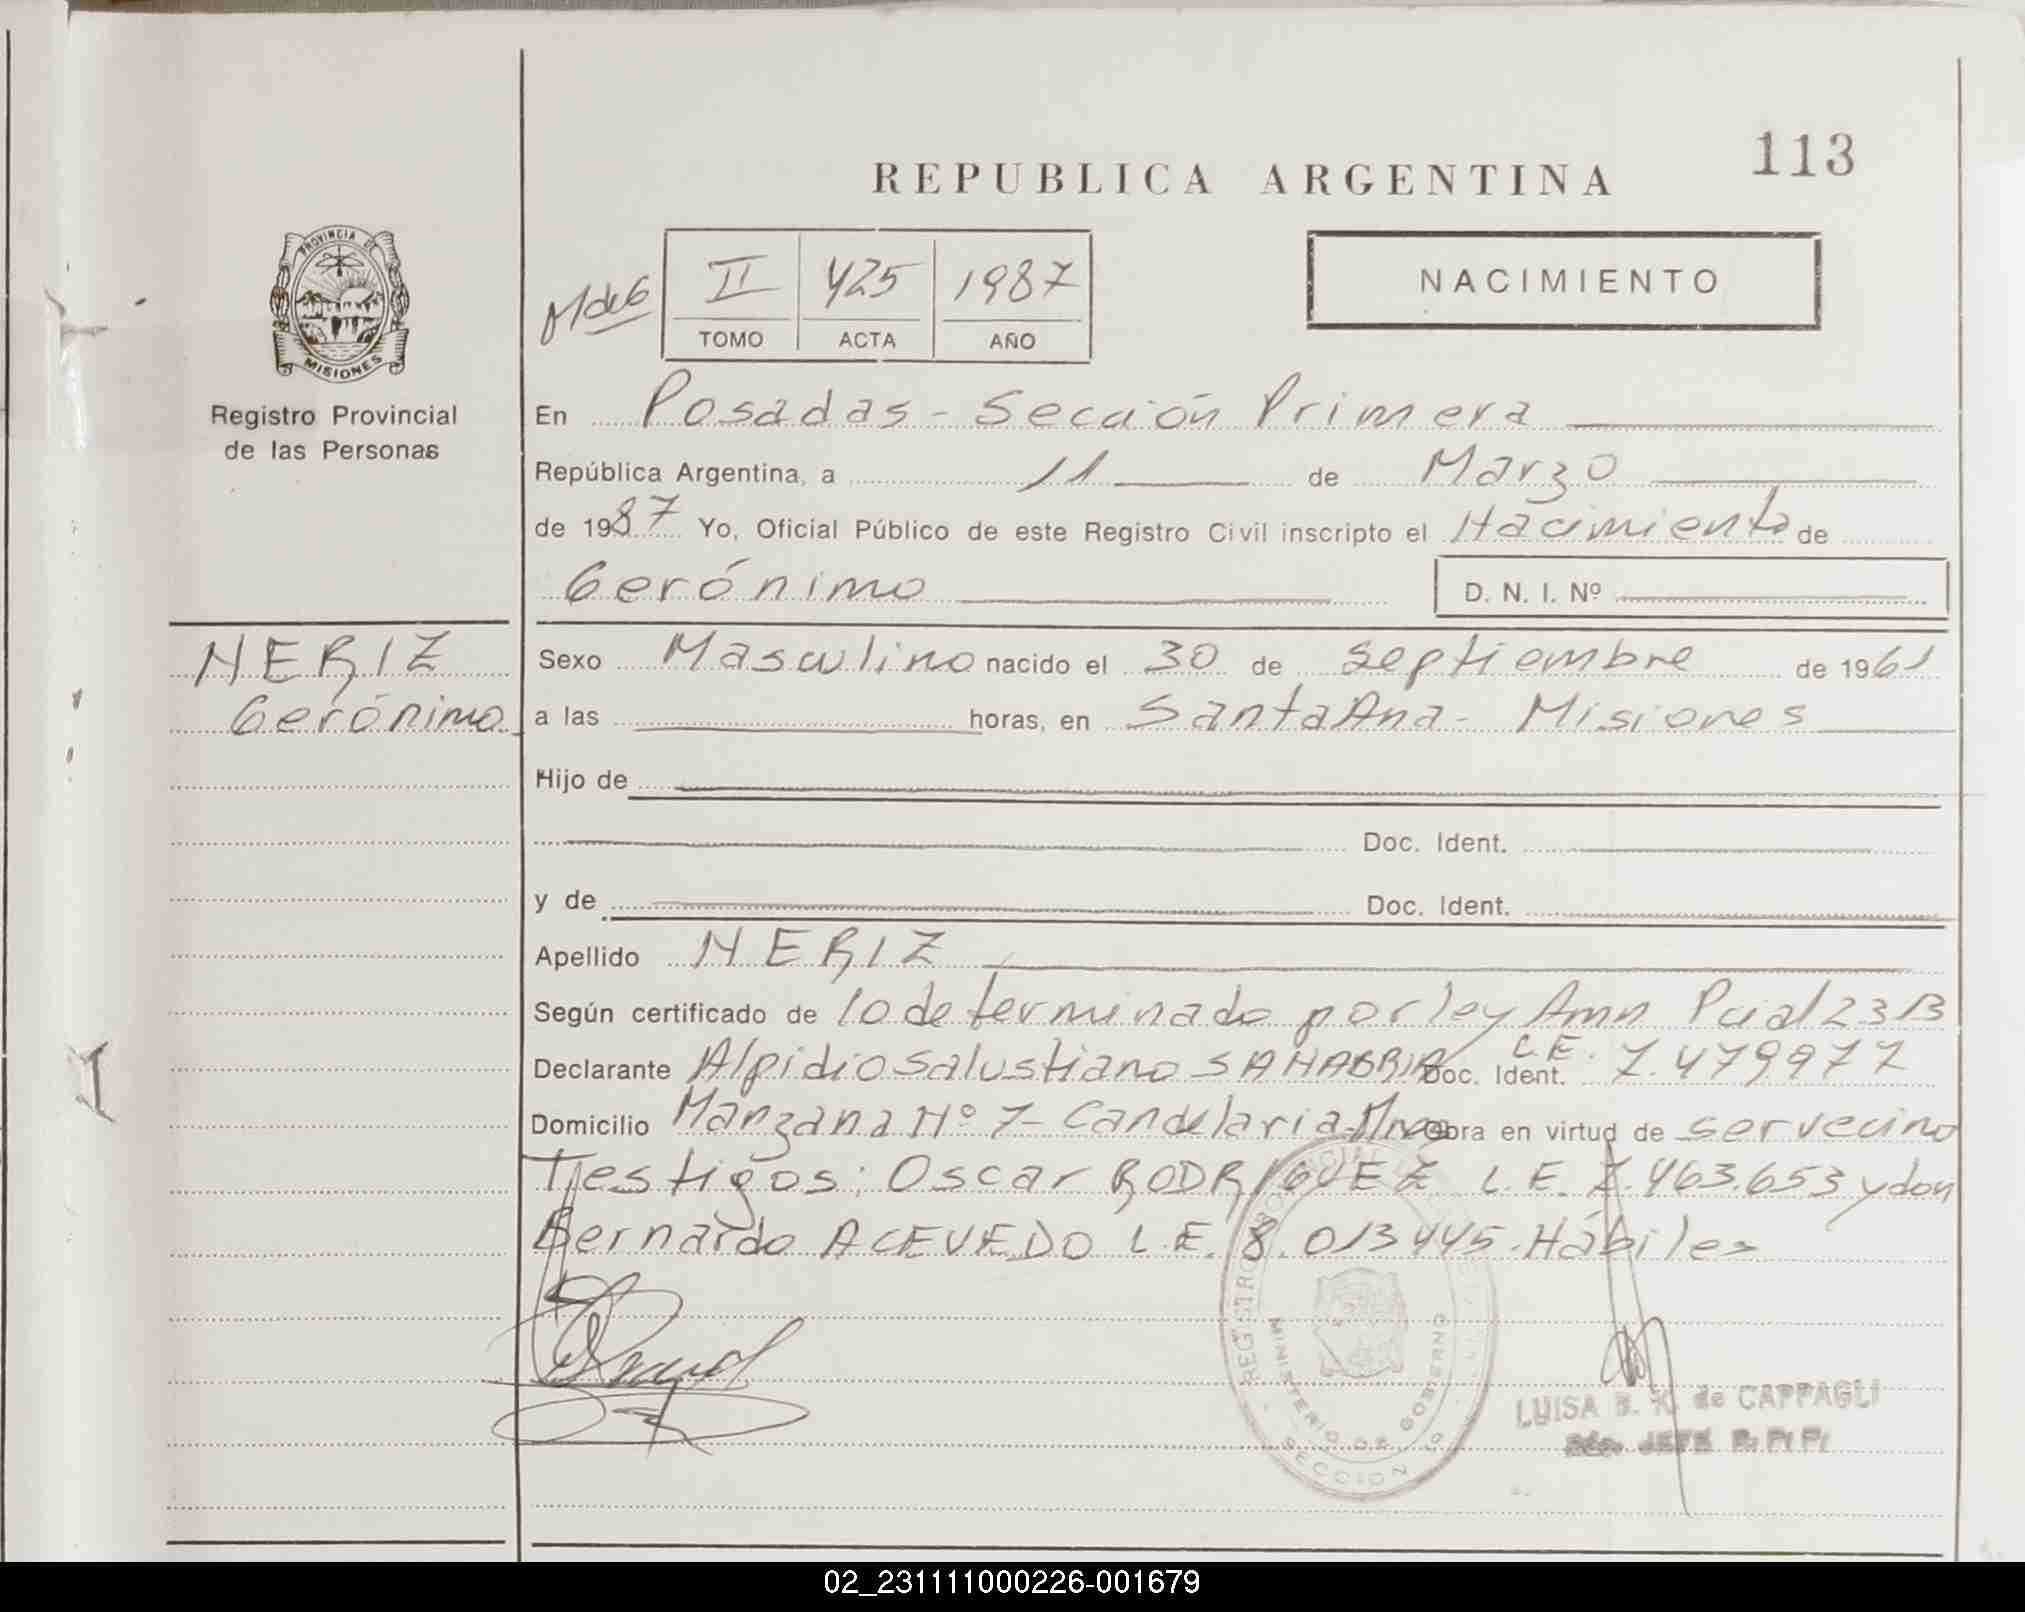 113
REPUBLICA ARGENTINA
PROVINCIA DE
MISIONES
Registro Provincial
de las Personas
II 425 1987
TOMO ACTA AÑO
NACIMIENTO
En Posadas - Sección Primera
República Argentina, a 11 de Marzo
de 1987 Yo, Oficial Público de este Registro Civil inscripto el Nacimiento de
Gerónimo D. N. I. Nº
NERIZ
Gerónimo
Sexo Masculino nacido el 30 de Septiembre de 1961
a las horas, en Santa Ana - Misiones
Hijo de
Doc. Ident.
y de Doc. Ident.
Apellido NERIZ
Según certificado de lo determinado por ley Amn Pcial 23B
Declarante Alpidio Salustiano SANABRIA Doc. Ident. L.E. 7.479977
Domicilio Manzana Nº 7 - Candelaria - Mnes Obra en virtud de ser vecino
Testigos: Oscar RODRIGUEZ L.E. 7.463.653 y don
Bernardo ACEVEDO L.E. 8.013445. Hábiles
REGISTRO PROVINCIAL
MINISTERIO DE GOBIERNO
SECCION
LUISA B. K. de CAPPAGLI
JEFE R. P. P.
02_231111000226-001679